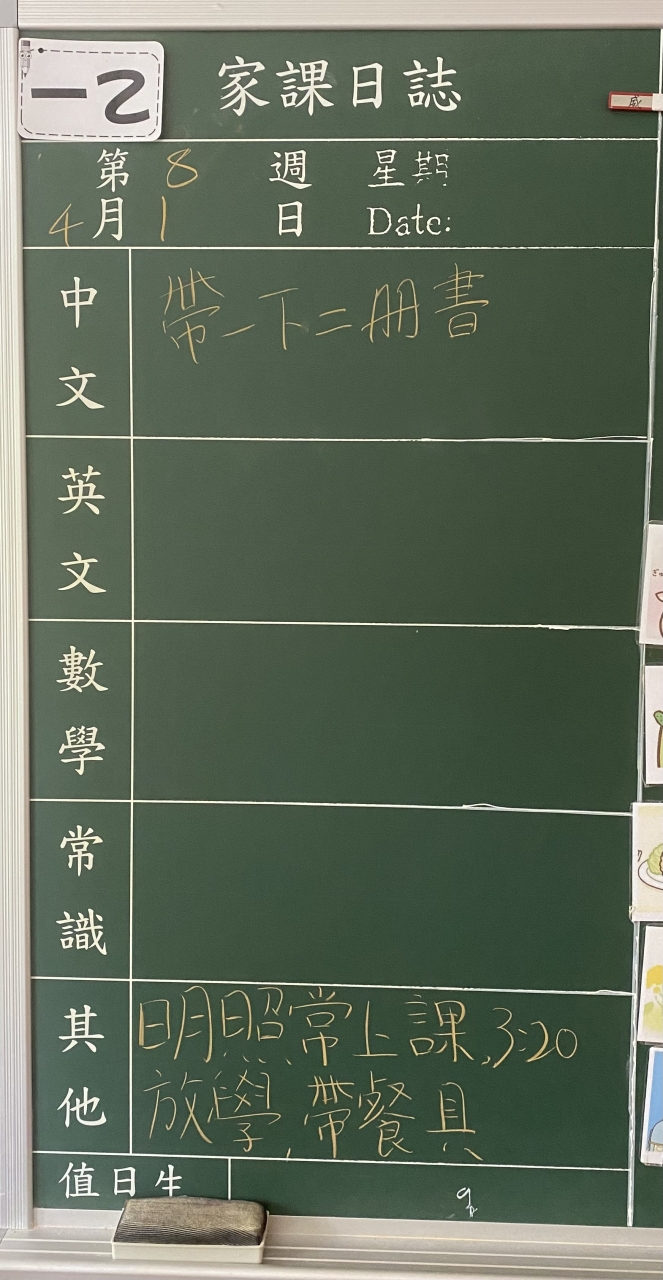 一乙
家課日誌
第 8 週 星期
4月1 日 Date:
中文
帶一下二册書
英文
數學
常識
其他
明照常上課,3:20
放學,帶餐具
值日生